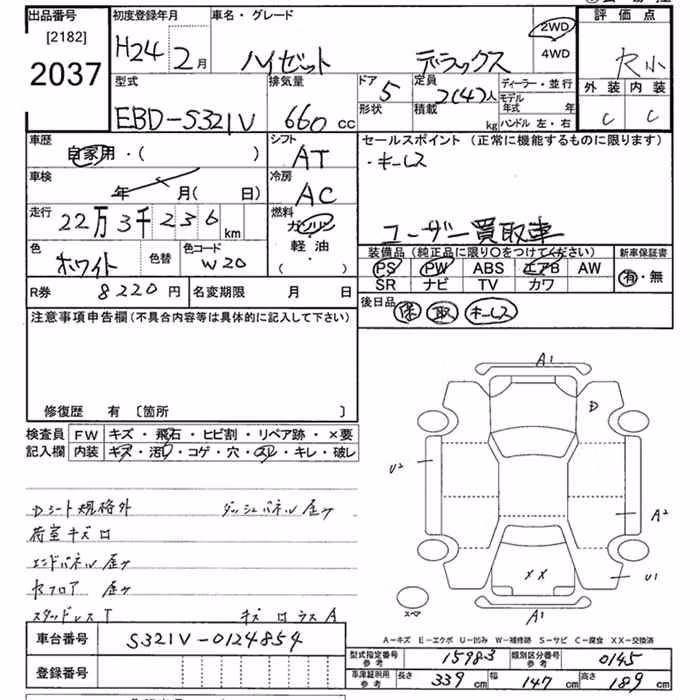 出品番号
[2182]
2037
初度登録年月
H24 2月
車名・グレード
ハイゼット デラックス
2WD
4WD
評価点
外装 内装
C C
型式
EBD-S321V
排気量
660 cc
ドア 5
形状
定員 2(4)人
積載 kg
ディーラー・並行
モデル年式 年
ハンドル 左・右
車歴
自家用・( )
車検
年 月( 日)
走行
22万3千236km
色
ホワイト
色替
色コード
W20
シフト
AT
冷房
AC
燃料
ガソリン
軽油
・( )
セールスポイント (正常に機能するものに限ります)
・キーレス
ユーザー買取車
装備品 (純正品に限り○をつけてください)
PS PW ABS エアB AW
SR ナビ TV カワ
新車保証書
有・無
R券 8220円
名変期限 月 日
後日品
保 取 キーレス
注意事項申告欄(不具合内容等は具体的に記入して下さい)
修復歴 有 〔箇所 〕
検査員記入欄
FW キズ・飛石・ヒビ割・リペア跡・×要
内装 キズ・汚れ・コゲ・穴・スレ・キレ・破レ
Dシート規格外 ダッシュパネル歪ケ
荷室キズロ
エンドパネル歪ケ
セフロア 歪ケ
スタッドレスT キズロラスA
A1
D
U2
A2
U1
XX
A1
スペア
A−キズ E−エクボ U−凹み W−補修跡 S−サビ C−腐食 XX−交換済
車台番号
S321V-0124854
登録番号
型式指定番号 参考 15983
類別区分番号 参考 0145
車庫証明用 参考
長さ 339cm
幅 147cm
高さ 189cm